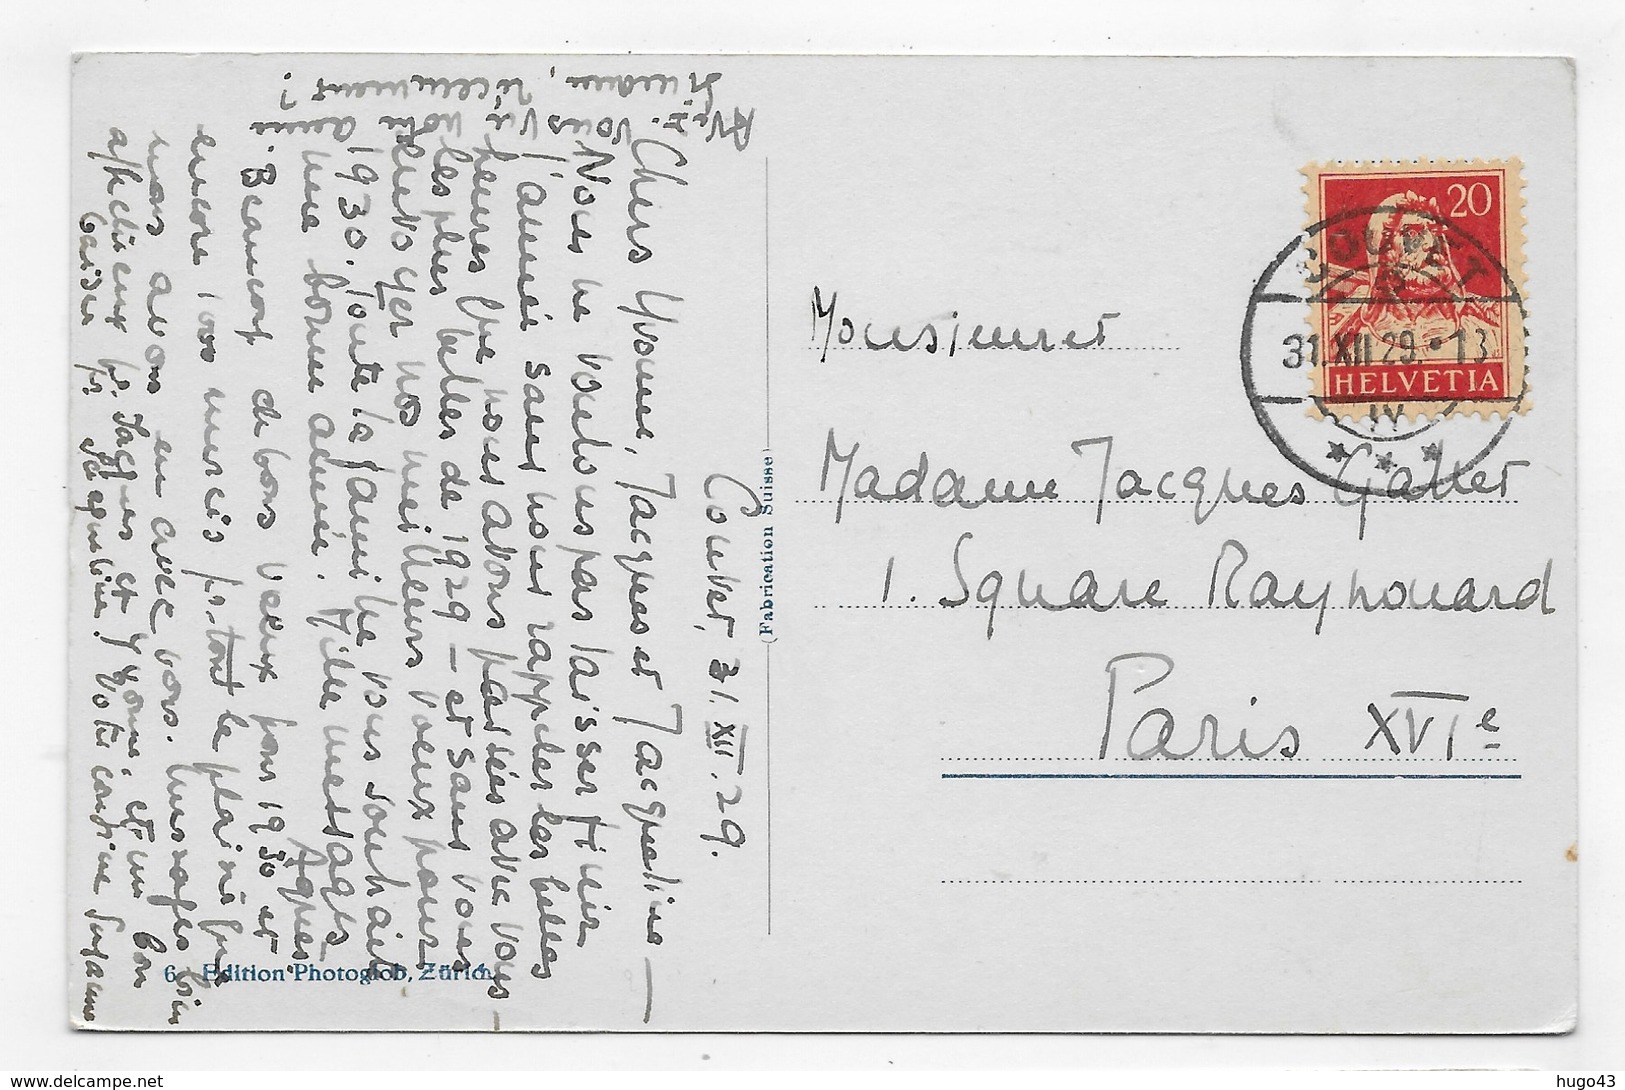 Couvet, 31.XII.29.
Chers Yvonne, Jacques et Jacqueline —
Nous ne voulons pas laisser finir
l'année sans vous rappeler les belles
heures que nous avons passées avec vous —
les plus belles de 1929 — et sans vous
envoyer nos meilleurs voeux pour
1930. Toute la famille vous souhaite
une bonne année. Mille messages
Agnes.
Beaucoup de bons voeux pour 1930 et
encore 1000 mercis pr tout le plaisir que
nous avons eu avec vous.
affectueux pr. Jacques et Yvonne, et un bon
baiser pr Jacqueline! Votre cousine Suzanne
vous notre amie
récemment?
(Fabrication Suisse)
6 Edition Photoglob, Zürich.
20
HELVETIA
COUVET
31.XII.29.-13
Monsieur et
Madame Jacques Galter
1. Square Raynouard
Paris XVIe
delcampe.net
hugo43